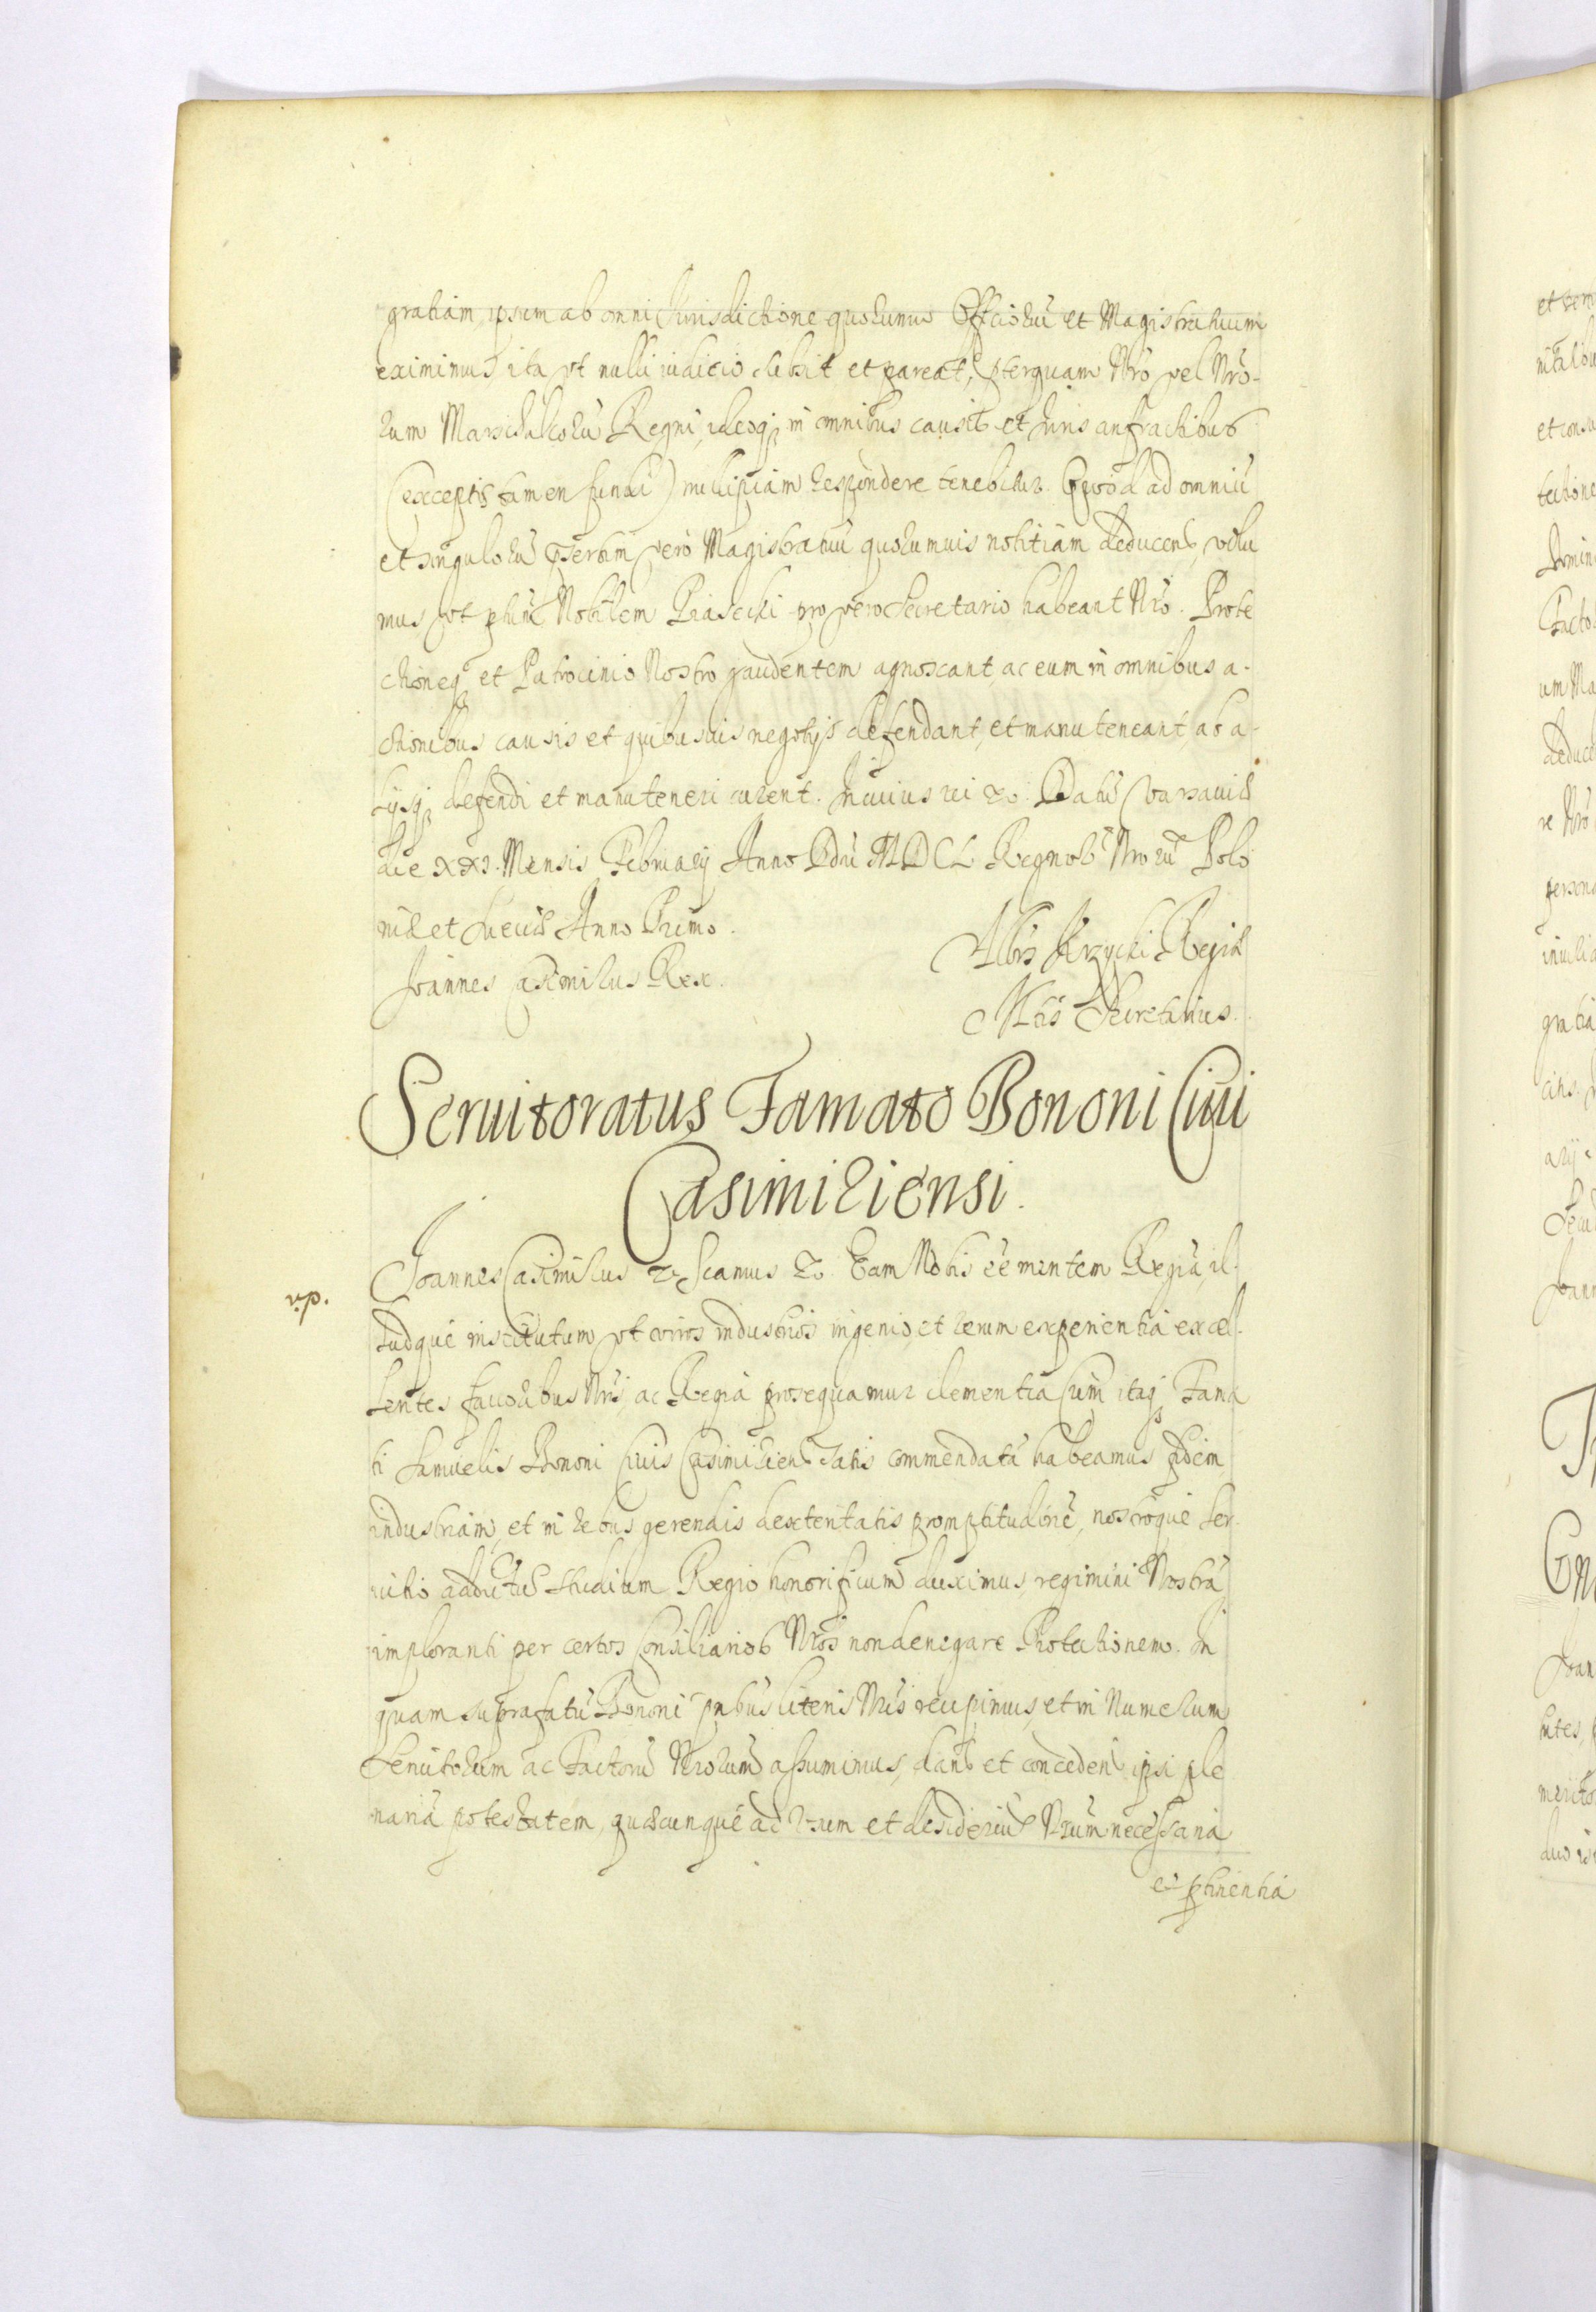 gratiam, ipsum ab omni Jurisdictione quorumvis Officiorũ et Magistratuum
eximimus ita vt nulli iudicio subsit et pareat, pterquam Nr̃o vel Nr̃o-
rum Marschalcorũ Regni, ideoqꝫ in omnibus causis et Juris anfractibus
(exceptis tamen fundi) nullipiam respondere tenebitur. Quod ad omniũ
et singulorũ psertim vero Magistratuũ quorumuis notitiam deducens, volu
mus vt phũc Nobilem Piasecki pro vero Secretario habeant Nr̃o. Prote
ctioneqꝫ et Patrocinio Nostro gaudentem agnoscant, ac eum in omnibus a-
ctionibus causis et quibusuis negotijs defendant, et manuteneant, ab a-
lijsqꝫ defendi et manuteneri curent. In cuius rei &. Datũ Varsauiæ
die XXI. Mensis Februarij Anno Dñi MDCL Regnorũ Nr̃orũ Polo
niæ et Sueciæ Anno Primo.
Joannes Casimirus Rex.
Albrs Krzycki Regiæ
Mttis Secretarius.
Seruitoratus Famato Bononi Ciui
Casimiriensi.
Joannes Casimirus & Scamus &. Eam Nobis eẽ mentem Regiã, il-
v.p.
ludque institutum, vt viros industrios ingenio, et rerum experientia excel-
lentes fauoribus Nr̃is, ac Regia prosequamur clementia Cum itaqꝫ Fama
ti Samuelis Bononi Ciuis Casimiriens satis commendatã habeamus fidem,
industriam, et in rebus gerendis dexteritatis promptitudinẽ, nostroque ser-
uitio adductũ studium Regio honorificum duximus, regimini Nostrã
imploranti per certos Consiliarios Nr̃os non denegare Protectionem. In
quam suprafatũ Bononi pñbus literis Nr̃is recipimus, et in Numerum
Seruitorum ac Factorũ Nr̃orum assumimus, dans et concedens ipsi ple
nariã potestatem, quæcunque ad vsum et desideriũ Nr̃um necessaria
et ptinentia